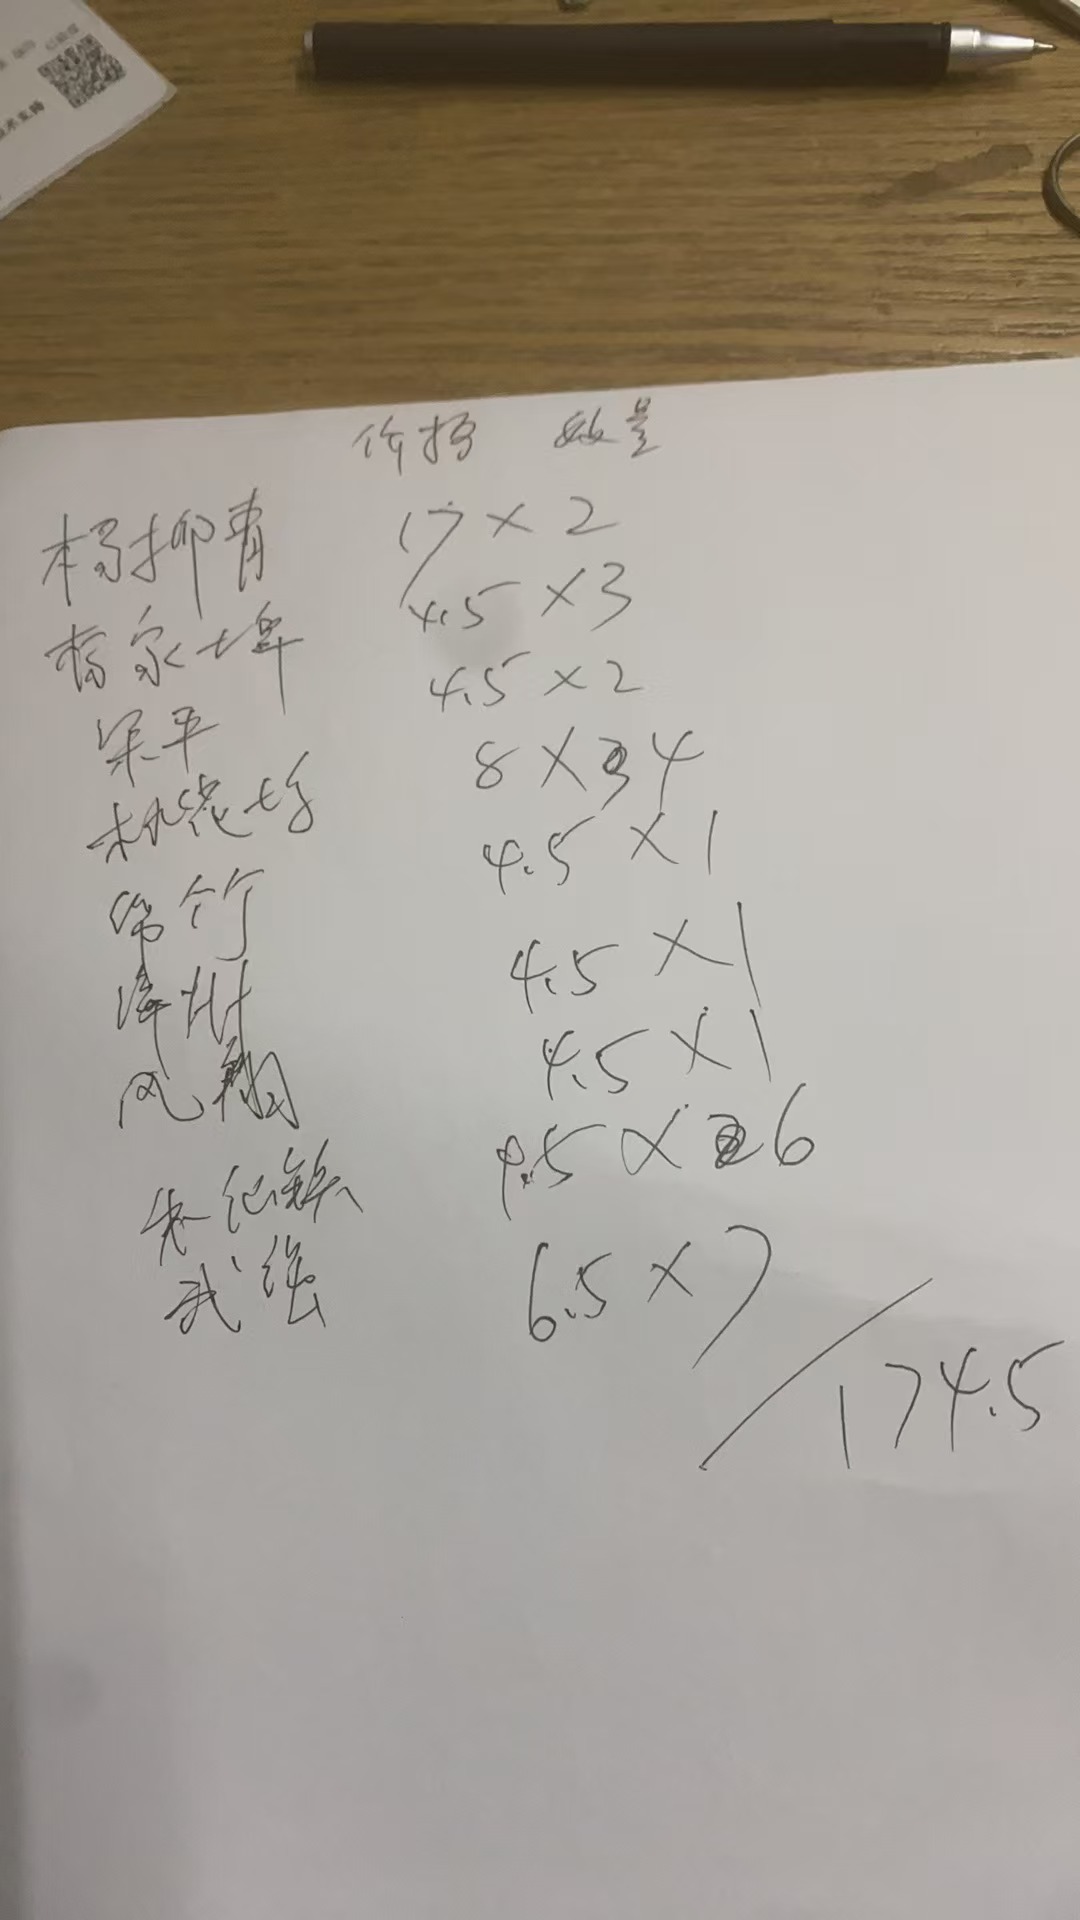 价格 数量
杨柳青 17×2
杨家埠 4.5×3
梁平 4.5×2
桃花坞 8×4
绵竹 4.5×1
绛州 4.5×1
凤翔 4.5×1
朱仙镇 4.5×6
武强 6.5×7
174.5